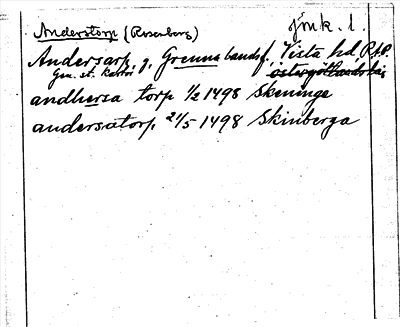 Anderstorp (Rosenberg) Jmk. l.
Andersarp, g, Grenna landsf., Vista hd,
Gen. st. kartor
andhersa torp 1/2 1498 Skeninge
andersatorp, 21/5 1498 Skinberga